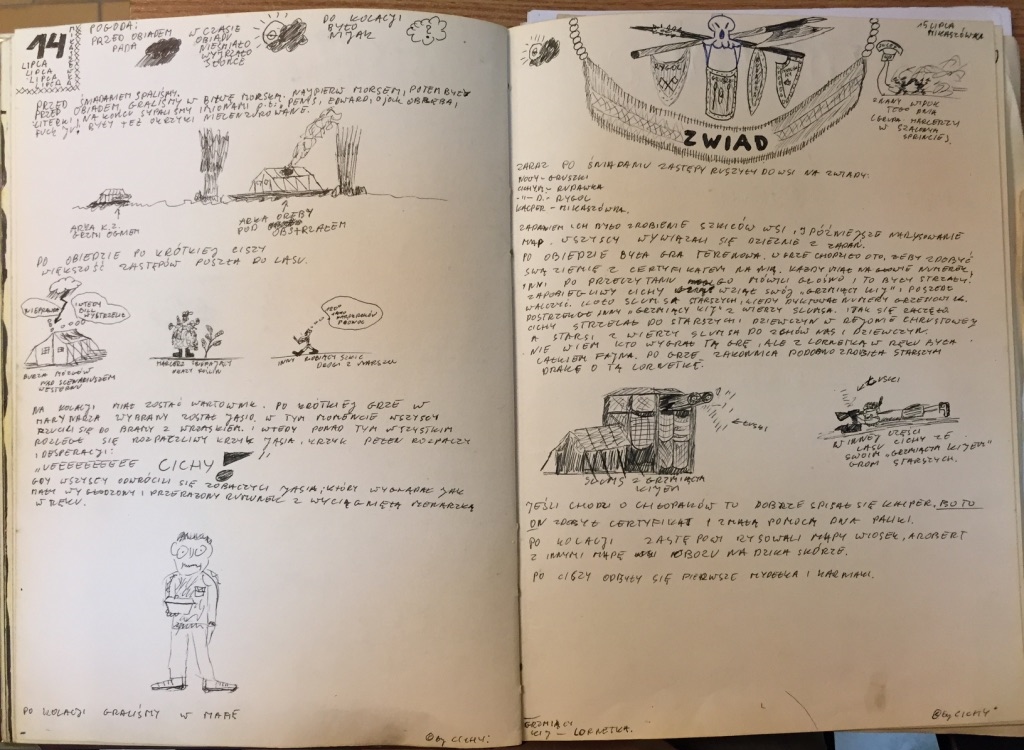 14
LIPCA
LIPCA
LIPCA
LIPCA
POGODA:
PRZED OBIADEM
PADA
W CZASIE
OBIADU
NIEŚMIAŁO
WYJRZAŁO
SŁOŃCE
DO KOLACJI
BYŁO
NIJAK
PRZED ŚNIADANIEM SPALIŚMY.
PRZED OBIADEM, GRALIŚMY W BITWĘ MORSKĄ. NAJPIERW MORSEM, POTEM BYŁY
LITERKI, NA KOŃCU SYPALIŚMY IMIONAMI P.T.: PENIS, EDWARD,
BYŁY TEŻ OKRZYKI NIECENZUROWANE.
ARKA K.Z.
GRZMI OGNIEM
ARKA OREBY
POD OBSTRZAŁEM
PO OBIEDZIE PO KRÓTKIEJ CISZY
WIĘKSZOŚĆ ZASTĘPÓW POSZŁA DO LASU.
NIEPRAWDA
WTEDY
BYŁ
WYSTRZELIŁ
BURZA MÓZGÓW
NAD SCENARIUSZEM
WESTERNU
HARCERZ
INNY ROBIĄCY SZKIC
DROGI Z MARSZU
NA KOLACJI MIAŁ ZOSTAĆ WARTOWNIK. PO KRÓTKIEJ GRZE W
MARYNARZA WYBRANY ZOSTAŁ JASIO. W TYM MOMENCIE WSZYSCY
RZUCILI SIĘ DO BRAMY Z WRZASKIEM. I WTEDY PONAD TYM WSZYSTKIM
ROZLEGŁ SIĘ ROZPACZLIWY KRZYK JASIA, KRZYK PEŁEN ROZPACZY
I DESPERACJI:
"UEEEEEEEEEE CICHY!"
GDY WSZYSCY ODWRÓCILI SIĘ ZOBACZYLI JASIA, KTÓRY WYGLĄDAŁ JAK
MAŁY WYGŁODZONY I PRZERAŻONY RUMUNEK Z WYCIĄGNIĘTĄ MENAŻKĄ
W RĘKU.
PO KOLACJI GRALIŚMY W MAFIĘ
© by CICHY
15 LIPCA
MIKASZÓWKA
RYGOL
ZWIAD
ZNANY WIDOK
TEGO DNIA
(GRUPA HARCERZY
W SZALONYM
SPRINCIE).
ZARAZ PO ŚNIADANIU ZASTĘPY RUSZYŁY DO WSI NA ZWIADY:
GRUSZKI
RUDAWKA
-11- D.- RYGOL
KACPER - MIKASZÓWKA.
ZADANIEM ICH BYŁO ZROBIENIE SZKICÓW WSI, I PÓŹNIEJSZE NARYSOWANIE
MAP. WSZYSCY WYWIĄZALI SIĘ DZIELNIE Z ZADAŃ.
PO OBIEDZIE BYŁA GRA TERENOWA. W GRZE CHODZIŁO OTO, ŻEBY ZDOBYĆ
SWĄ ZIEMIĘ Z CERTYFIKATEM NA NIĄ. KAŻDY MIAŁ NA GŁOWIE NUMEREK,
INNI PO PRZECZYTANIU GO MÓWILI GŁOŚNO I TO BYŁY STRZAŁY.
ZAPOBIEGLIWY CICHY WZIĄŁ SWÓJ „GRZMIĄCY KIJ" I POSZEDŁ
WALCZYĆ. KOŁO SLUMSA STARSZYCH, KIEDY DYKTOWAŁ NUMERY GRZENOWI K.
POSTRZEGŁ INNY „GRZMIĄCY KIJ" Z WIEŻY SLUMSA. I TAK SIĘ ZACZĘŁO.
CICHY STRZELAŁ DO STARSZYCH I DZIEWCZYN W REJONIE CHRUSTOWEJ
A STARSI Z WIEŻY SLUMSA DO NAS I DZIEWCZYN.
NIE WIEM KTO WYGRAŁ TĄ GRĘ, ALE Z LORNETKĄ W RĘKU BYŁA
CAŁKIEM FAJNA. PO GRZE ZAKONNICA PODOBNO ZROBIŁA STARSZYM
DRAKĘ O TĄ LORNETKĘ.
ŁUSKI
SLUMS Z GRZMIĄCYM
KIJEM
ŁUSKI
W INNEJ CZĘŚCI
LASU CICHY ZE
SWOIM „GRZMIĄCYM KIJEM"
GROMI STARSZYCH.
JEŚLI CHODZI O CHŁOPAKÓW TO DOBRZE SPISAŁ SIĘ KACPER, BO TO
ON ZDOBYŁ CERTYFIKAT Z MAŁĄ POMOCĄ DNA PALIKI.
PO KOLACJI ZASTĘPOWI RYSOWALI MAPY WIOSEK, A ROBERT
Z INNYMI MAPĘ OBOZU NA DZIKA SKÓRZE.
PO CISZY ODBYŁY SIĘ PIERWSZE MYDEŁKA I KARNIAKI.
GRZMIĄCY
KIJ - LORNETKA.
© by CICHY